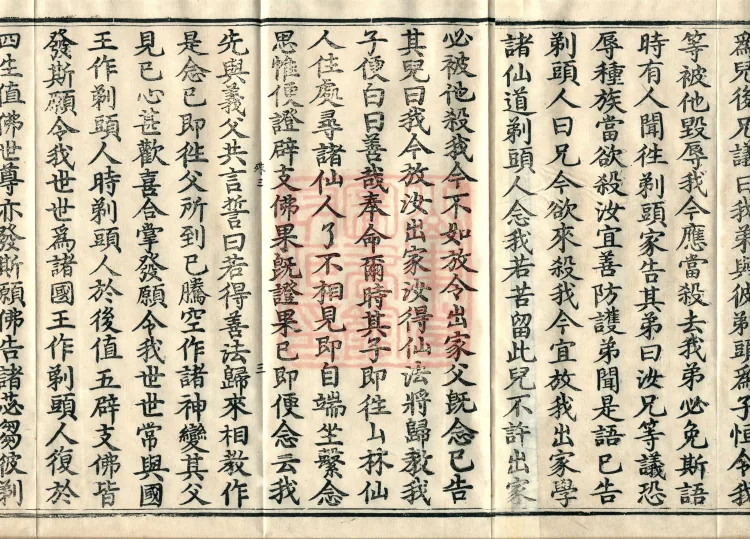 爲兒後兄議曰我弟與彼弟頭爲子恒令我
等被他毀辱我今應當殺去我弟必免斯語
時有人聞徃剃頭家告其弟曰汝兄等議恐
辱種族當欲殺汝宜善防護弟聞是語已告
剃頭人曰兄今欲來殺我今宜放我出家學
諸仙道剃頭人念我若苦留此兒不許出家
必被他殺我今不如放令出家父旣念已告
其兒曰我今放汝出家汝得仙法將歸教我
子便白曰善哉奉命爾時其子即徃山林仙
人住處尋諸仙人了不相見即自端坐繫念
思惟便證辟支佛果旣證果已即便念云我
先與義父共言誓曰若得善法歸來相教作
是念已即徃父所到已騰空作諸神變其父
見已心甚歡喜合掌發願令我世世常與國
王作剃頭人時剃頭人於後值五辟支佛皆
發斯願令我世世爲諸國王作剃頭人復於
四生值佛世尊亦發斯願佛告諸苾芻彼剃
三